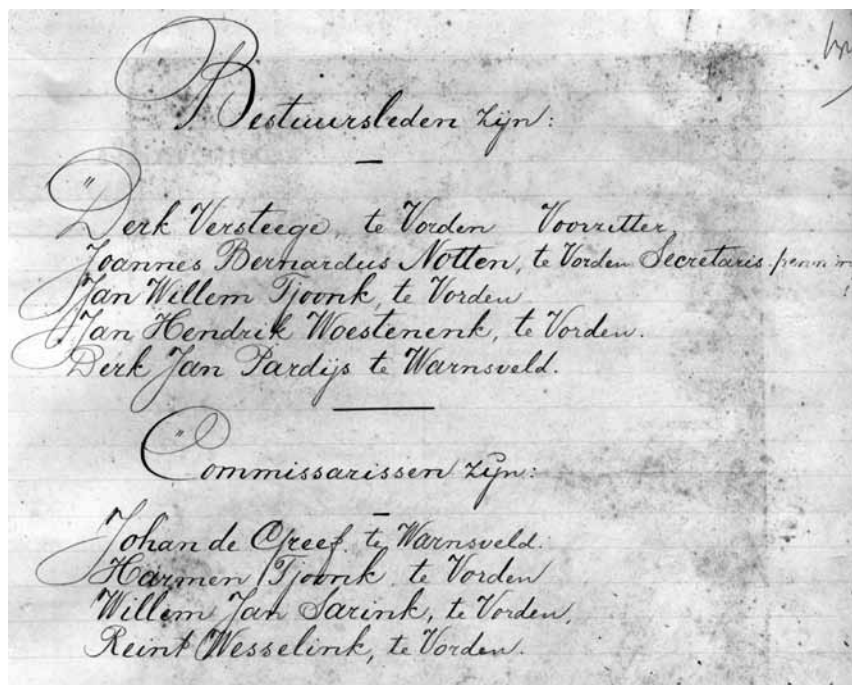 Bestuursleden zijn:
Derk Versteege, te Vorden Voorzitter,
Joannes Bernardus Notten, te Vorden Secretaris-penn
Jan Willem Tjoonk, te Vorden
Jan Hendrik Woestenenk, te Vorden.
Derk Jan Pardijs te Warnsveld.
Commissarissen zijn:
Johan de Greef. te Warnsveld.
Harmen Tjoonk. te Vorden
Willem Jan Sarink, te Vorden,
Reint Wesselink, te Vorden.